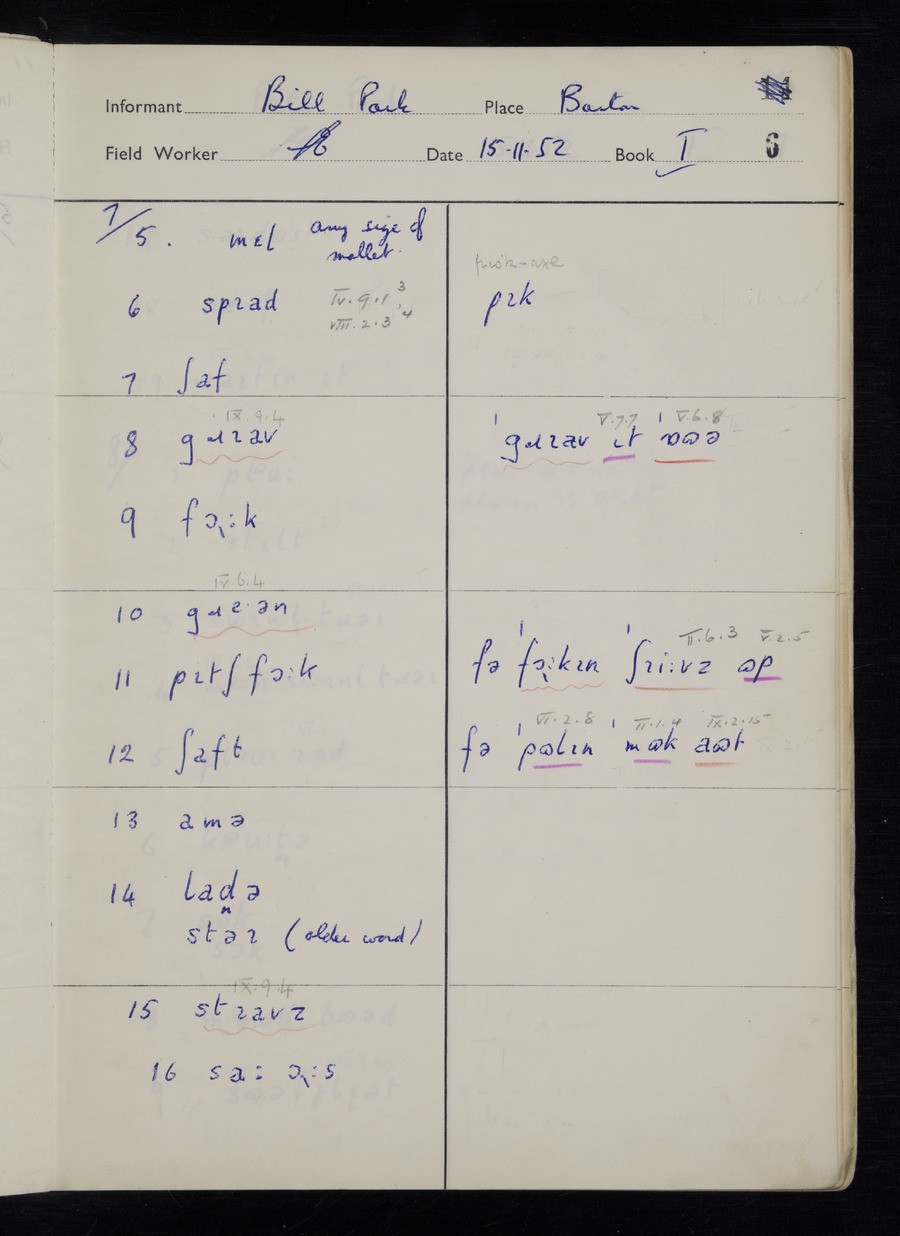 Informant Bill Park Place Barton
Field Worker Date 15-11-52 Book I 6
7/5. mɛl any size of
mallet.
pick-axe
6 spɪad IV.9.1 3
VIII.2.3, 4
pɪk
7 ʃaf
IX.9.4
8 gɹɪav
V.7.7 V.6.8
9 fɔ̜:k
IV.6.4
10
11 pɪtʃfɔ:k
II.6.3 V.2.5
fə
12 ʃaft
VI.2.8 II.1.4 IX.2.15
fə
13 amə
14 ladə
stəɪ (older word)
IX.9.4
15 stɪavz
16 sa: ɔ̜:s